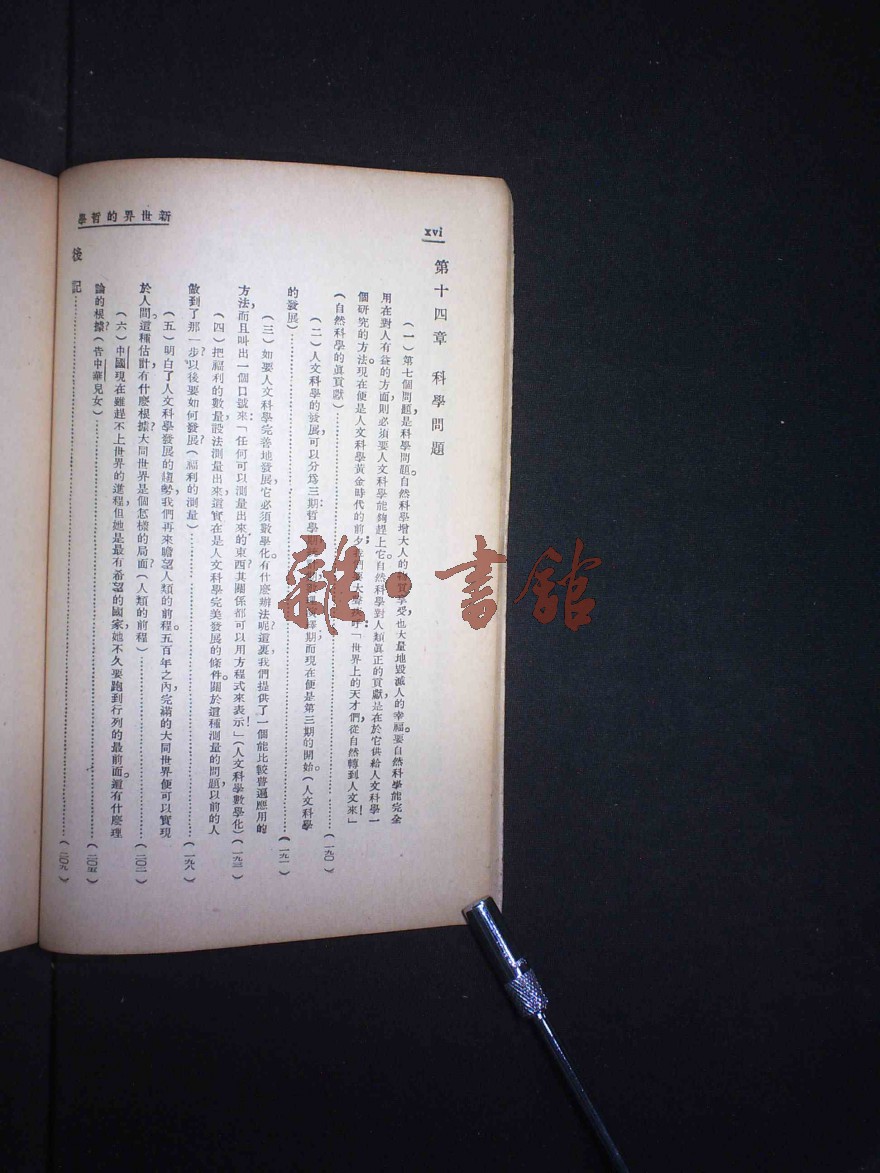 xvi
新世界的哲學
第十四章 科學問題
(一)第七個問題,是科學問題。自然科學增大人的物質享受,也大量地毀滅人的幸福。要自然科學能完全
用在對人有益的方面,則必須要人文科學能夠趕上它。自然科學對人類眞正的貢獻,是在於它供給人文科學一
個研究的方法。現在便是人文科學黃金時代的前夕,我們要大聲 「世界上的天才們,從自然轉到人文來!」
(自然科學的眞貢獻)……(一九〇)
(二)人文科學的發展,可以分爲三期:哲學期, 期而現在便是第三期的開始。(人文科學
的發展)……(一九一)
(三)如要人文科學完善地發展,它必須數學化。有什麼辦法呢?這裏,我們提供了一個能比較普遍應用的
方法,而且叫出一個口號來:「任何可以測量出來的東西,其關係都可以用方程式來表示!」(人文科學數學化)(一九三)
(四)把福利的數量,設法測量出來,這實在是人文科學完美發展的條件。關於這種測量的問題,以前的人
做到了那一步?以後要如何發展?(福利的測量)……(一九八)
(五)明白了人文科學發展的趨勢,我們再來瞻望人類的前程。五百年之內,完滿的大同世界便可以實現
於人間。這種估計有什麼根據?大同世界是個怎樣的局面?(人類的前程)……(二〇二)
(六)中國現在雖趕不上世界的進程,但她是最有希望的國家,她不久要跑到行列的最前面。這有什麼理
論的根據?(告中華兒女)……(二〇五)
後記……(二〇九)
雜·書館